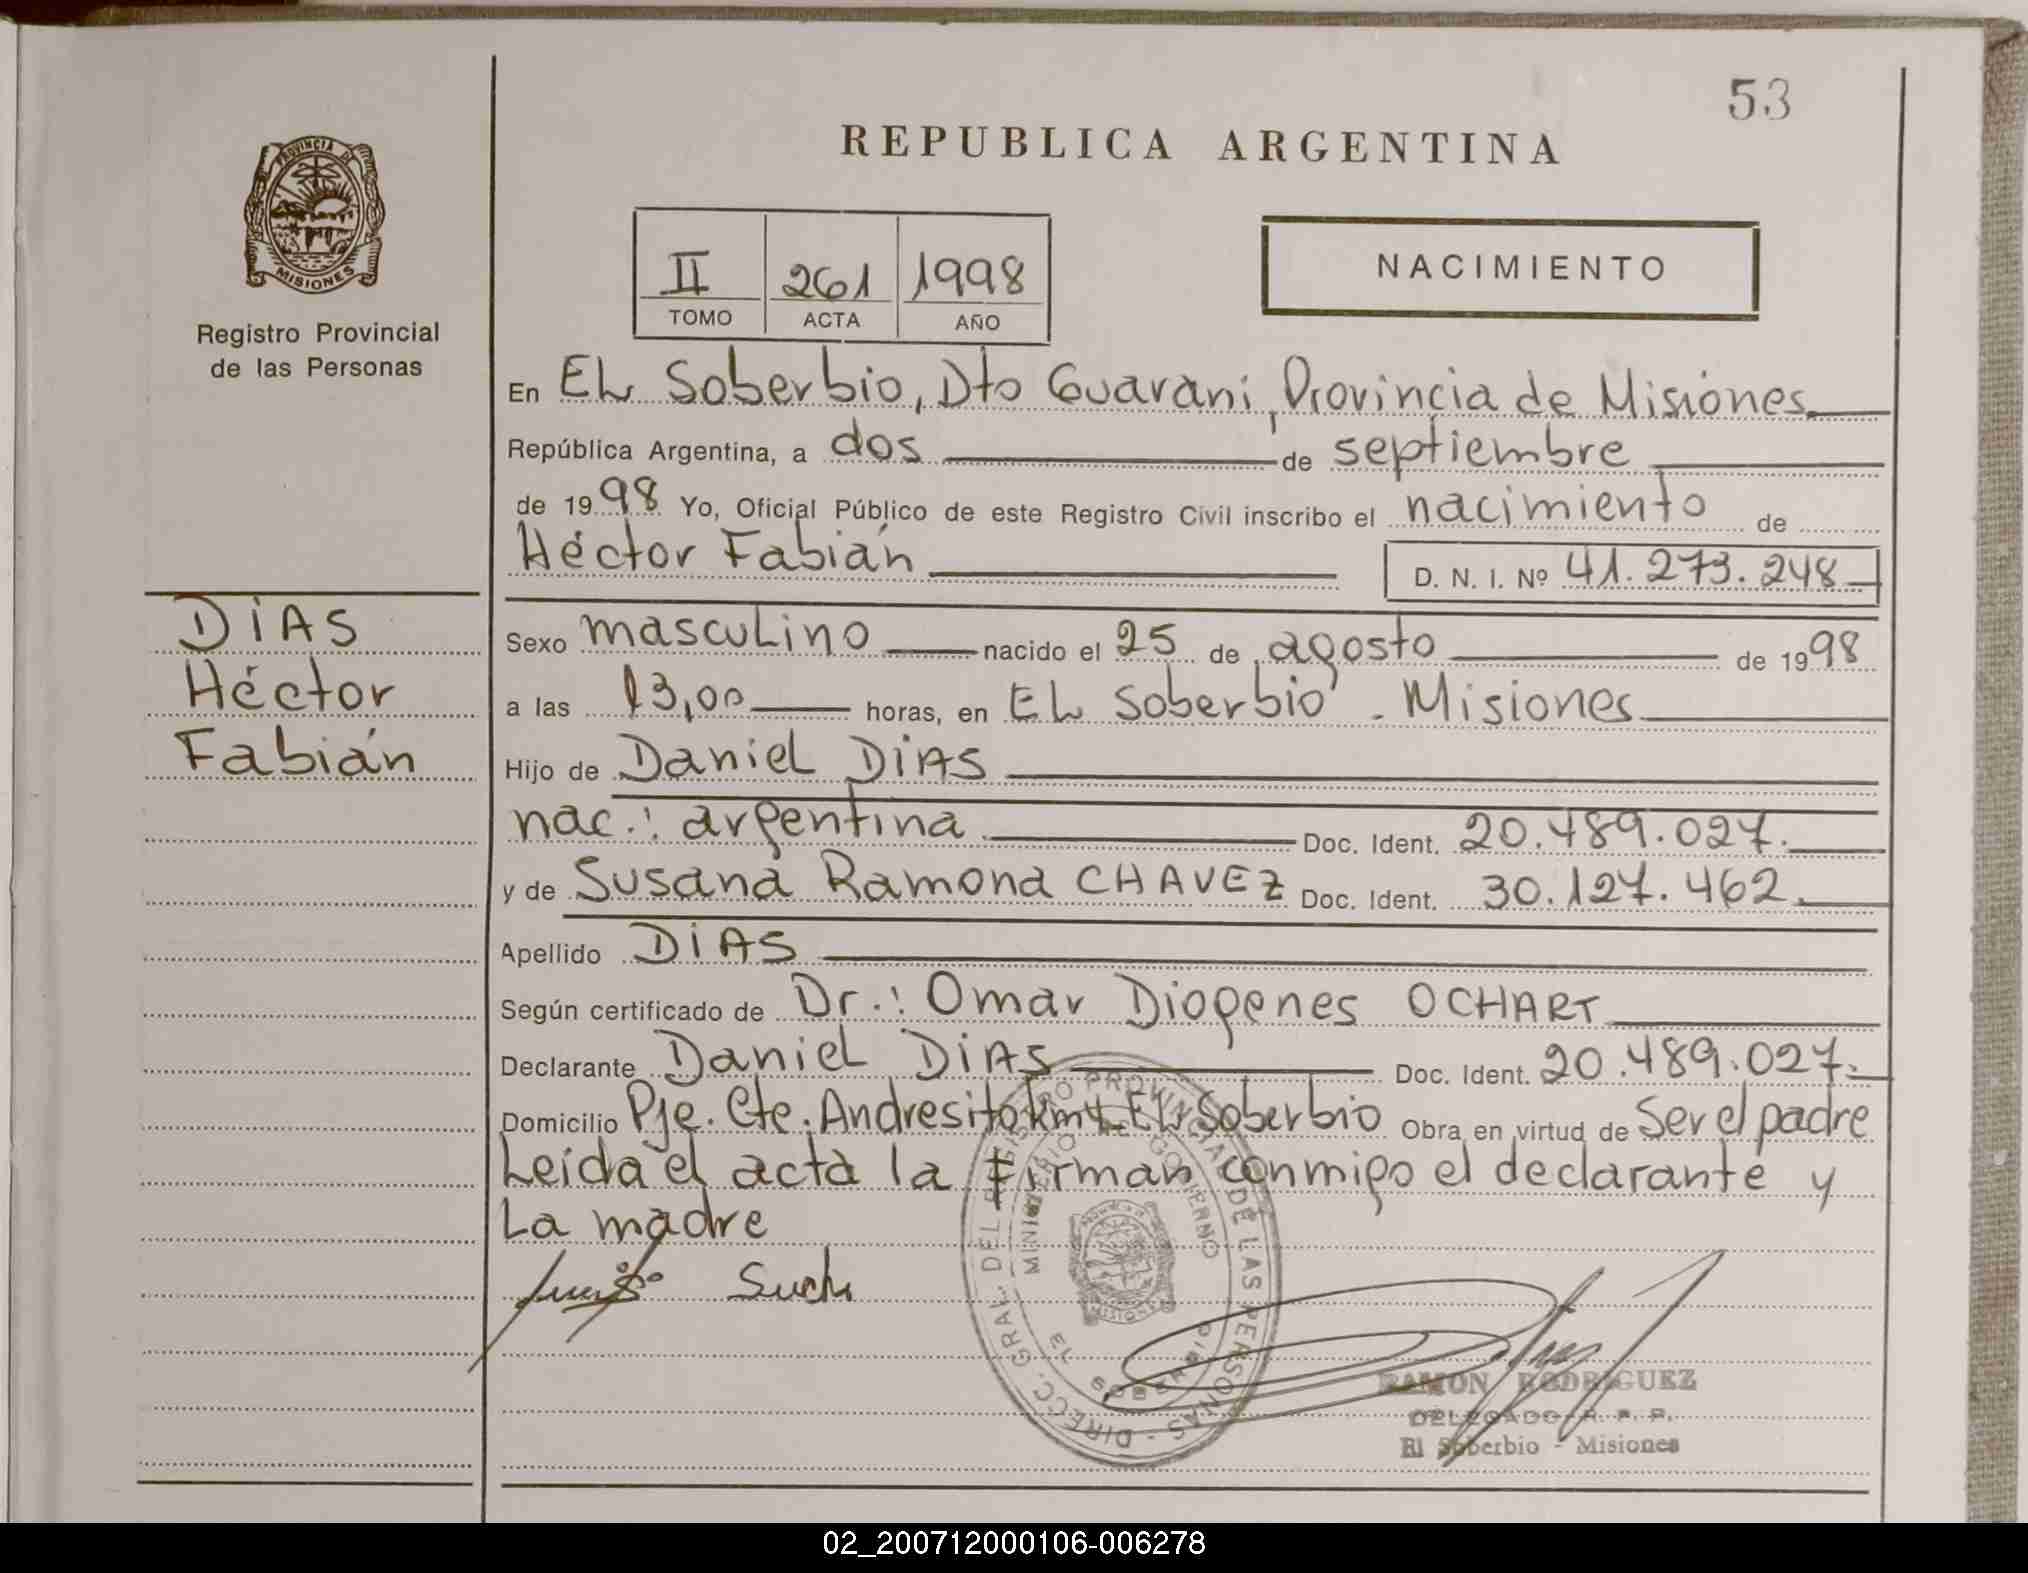 53
REPUBLICA ARGENTINA
PROVINCIA DE
MISIONES
Registro Provincial
de las Personas
II 261 1998
TOMO ACTA AÑO
NACIMIENTO
En EL Soberbio, Dto Guaraní, Provincia de Misiones
República Argentina, a dos de septiembre
de 1998 Yo, Oficial Público de este Registro Civil inscribo el nacimiento de
Héctor Fabián D. N. I. Nº 41.273.248
DiAS
Héctor
Fabián
Sexo masculino nacido el 25 de agosto de 1998
a las 13,00 horas, en EL Soberbio - Misiones
Hijo de Daniel DiAS
nac.: argentina Doc. Ident. 20.489.027.
y de Susana Ramona CHAVEZ Doc. Ident. 30.127.462.
Apellido DiAS
Según certificado de Dr.: Omar Diogenes OCHART
Declarante Daniel DiAS Doc. Ident. 20.489.027.
Domicilio Pje. Cte. Andresito km 4 EL Soberbio Obra en virtud de Ser el padre
Leida el acta la firman conmigo el declarante y
La madre
DIRECC. GRAL. DEL REGISTRO PROVINCIAL DE LAS PERSONAS -
MINISTERIO DE GOBIERNO
SOBERBIO
MISIONES
RAMON RODRIGUEZ
DELEGADO R. P. P.
El Soberbio - Misiones
02_200712000106-006278